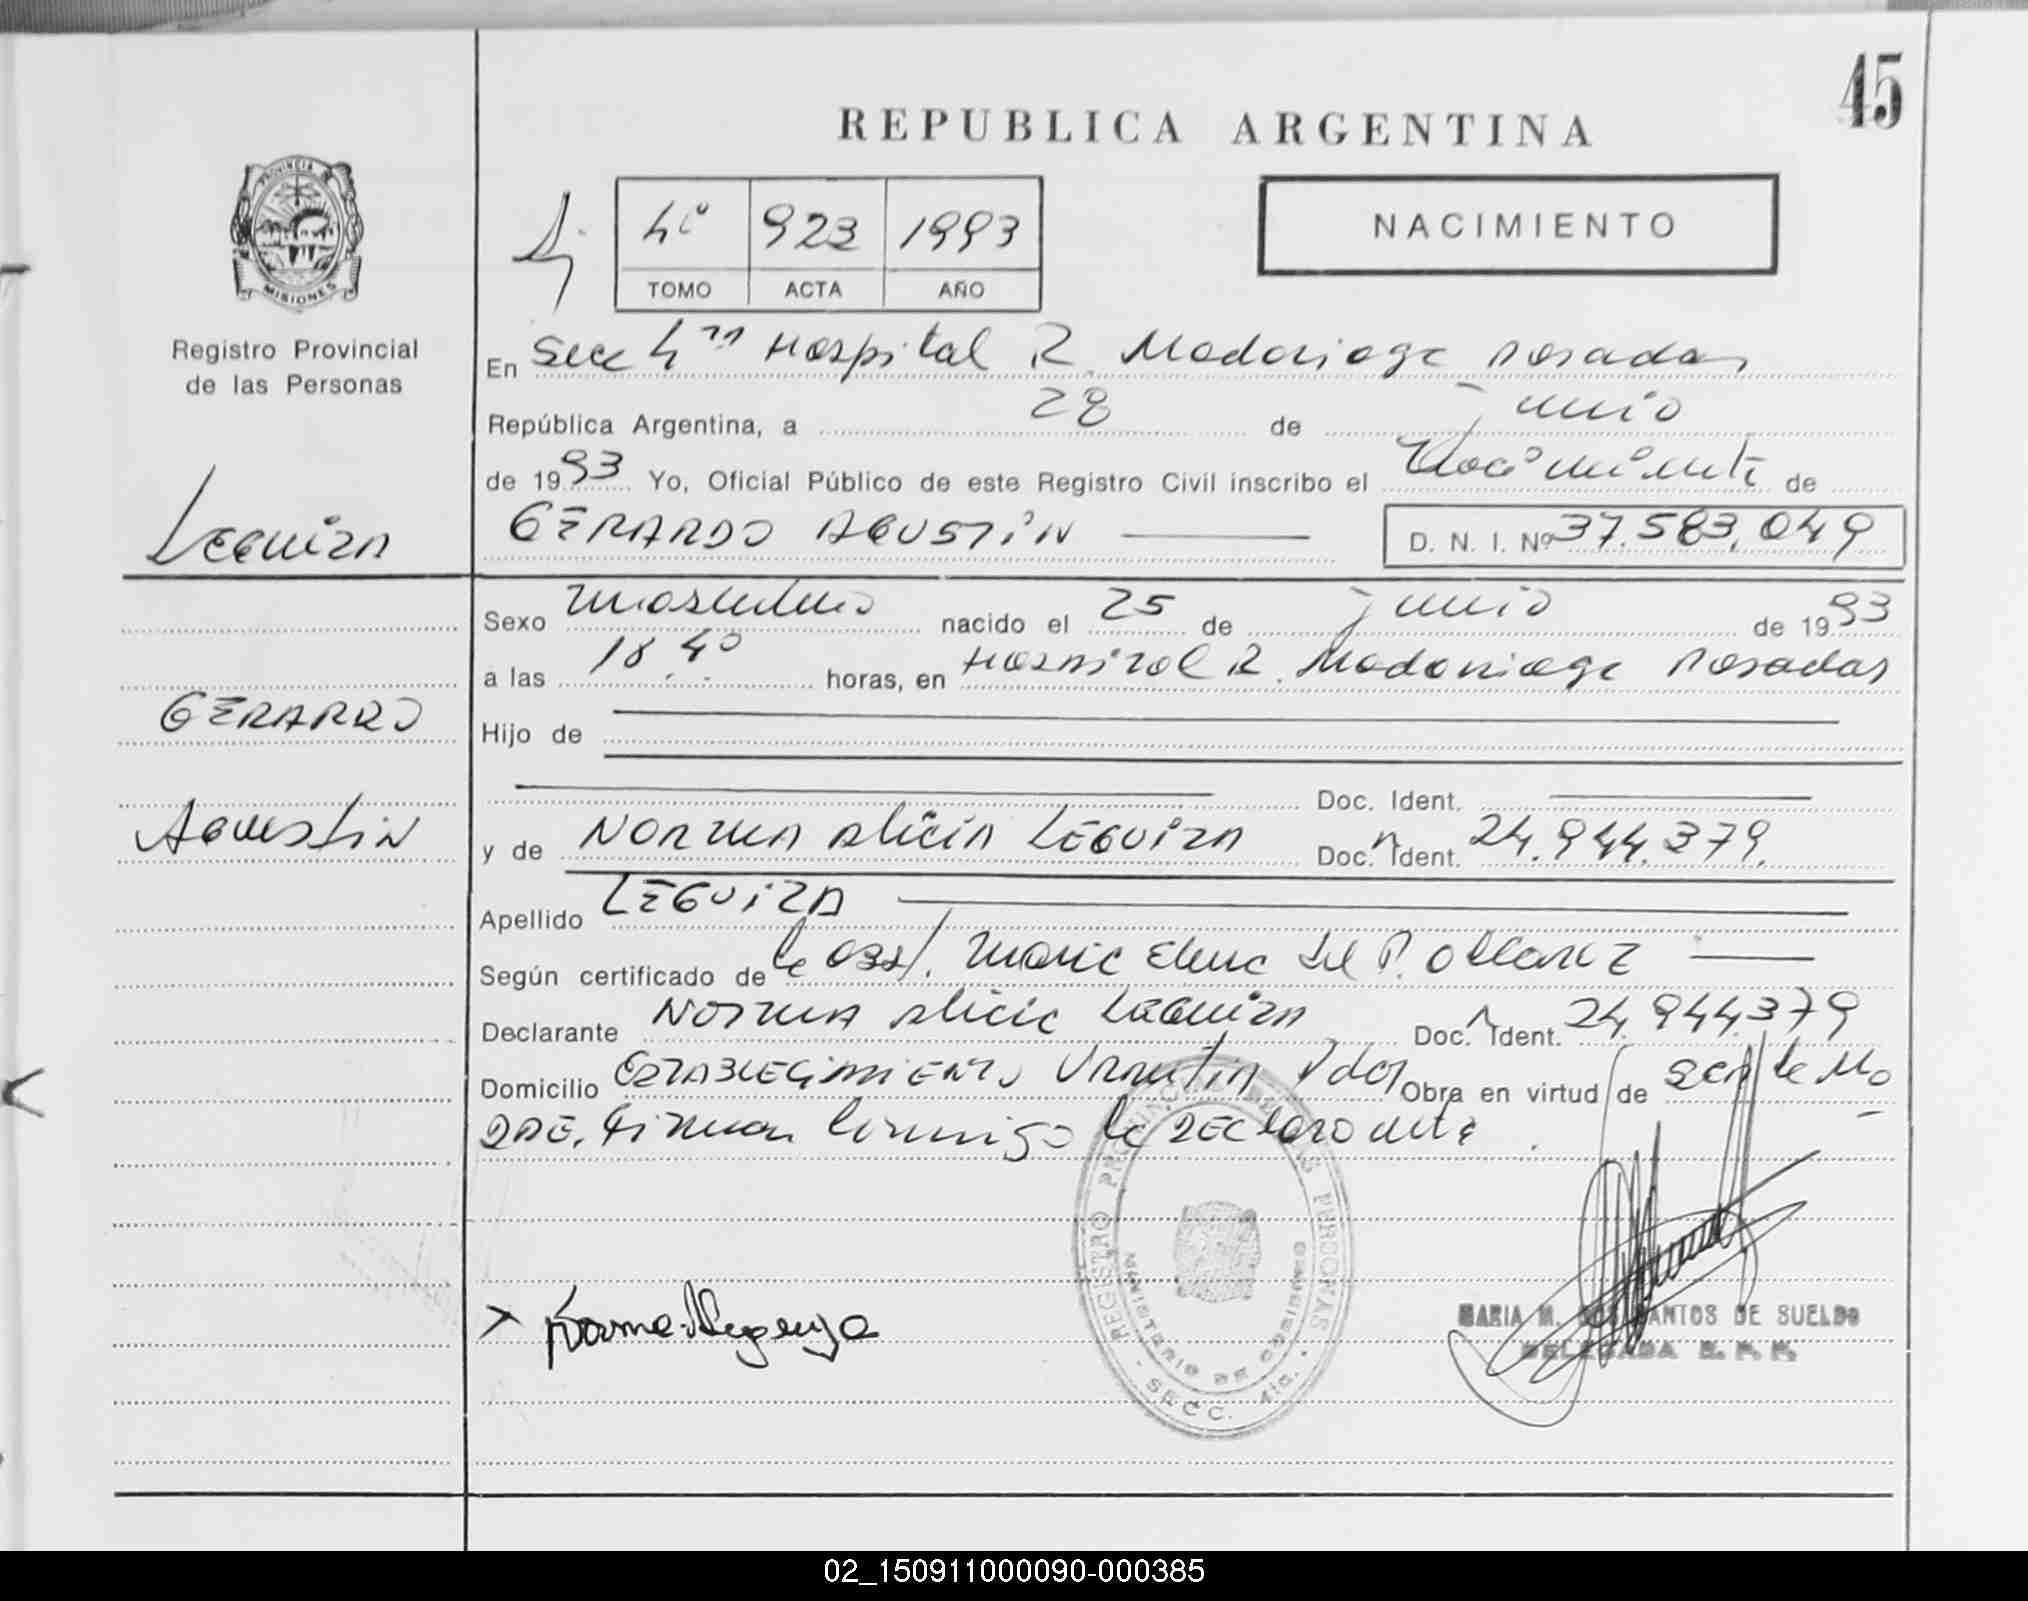 45
REPUBLICA ARGENTINA
PROVINCIA
MISIONES
Registro Provincial
de las Personas
4º 923 1993
TOMO ACTA AÑO
NACIMIENTO
En Secc 4ta Hospital R. Madariaga Posadas
República Argentina, a 28 de junio
de 1993 Yo, Oficial Público de este Registro Civil inscribo el Nacimiento de
Leguiza
GERARDO AGUSTIN
D. N. I. Nº 37.583.049
Sexo masculino nacido el 25 de junio de 1993
a las 18.40 horas, en Hospital R. Madariaga Posadas
GERARDO
Hijo de
Doc. Ident.
Agustin
y de NORMA Alicia LEGUIZA Doc. Ident. 24.944.379.
Apellido LEGUIZA
Según certificado de la obst. Maria Elena del P.
Declarante NORMA Alicia Leguiza Doc. Ident. 24.944.379
Domicilio ESTABLECIMIENTO Pdas Obra en virtud de ser la Ma
DRE. Firman conmigo la DEClarante.
REGISTRO PROVINCIAL DE LAS PERSONAS
MINISTERIO DE GOBIERNO
SECC. 4ta.
MARIA M. DOS SANTOS DE SUELDO
DELEGADA R. P. P.
02_150911000090-000385